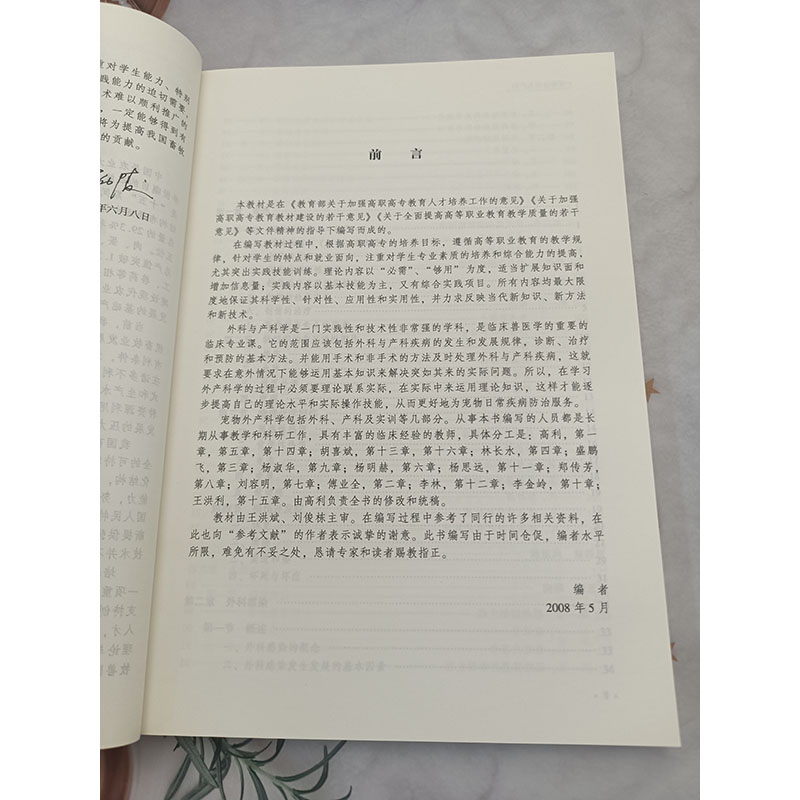 重对学生能力、特别
践能力的迫切需要,
术难以顺利推广的
,一定能够得到有
将为提高我国畜牧
的贡献。
年六月八日
前 言
本教材是在《教育部关于加强高职高专教育人才培养工作的意见》《关于加强
高职高专教育教材建设的若干意见》《关于全面提高高等职业教育教学质量的若干
意见》等文件精神的指导下编写而成的。
在编写教材过程中,根据高职高专的培养目标,遵循高等职业教育的教学规
律,针对学生的特点和就业面向,注重对学生专业素质的培养和综合能力的提高,
尤其突出实践技能训练。理论内容以“必需”、“够用”为度,适当扩展知识面和
增加信息量;实践内容以基本技能为主,又有综合实践项目。所有内容均最大限
度地保证其科学性、针对性、应用性和实用性,并力求反映当代新知识、新方法
和新技术。
外科与产科学是一门实践性和技术性非常强的学科,是临床兽医学的重要的
临床专业课。它的范围应该包括外科与产科疾病的发生和发展规律,诊断、治疗
和预防的基本方法。并能用手术和非手术的方法及时处理外科与产科疾病,这就
要求在意外情况下能够运用基本知识来解决突如其来的实际问题。所以,在学习
外产科学的过程中必须要理论联系实际,在实际中来运用理论知识,这样才能逐
步提高自己的理论水平和实际操作技能,从而更好地为宠物日常疾病防治服务。
宠物外产科学包括外科、产科及实训等几部分。从事本书编写的人员都是长
期从事教学和科研工作,具有丰富的临床经验的教师,具体分工是:高利,第一
章,第五章,第十四章;胡喜斌,第十三章,第十六章;林长水,第四章;盛鹏
飞,第三章;杨淑华,第九章;杨明赫,第六章;杨思远,第十一章;郑传芳,
第八章;刘容明,第七章;傅业全,第二章;李林,第十二章;李金岭,第十章;
王洪利,第十五章。由高利负责全书的修改和统稿。
教材由王洪斌、刘俊栋主审。在编写过程中参考了同行的许多相关资料,在
此也向“参考文献”的作者表示诚挚的谢意。此书编写由于时间仓促,编者水平
所限,难免有不妥之处,恳请专家和读者赐教指正。
编 者
2008 年 5 月